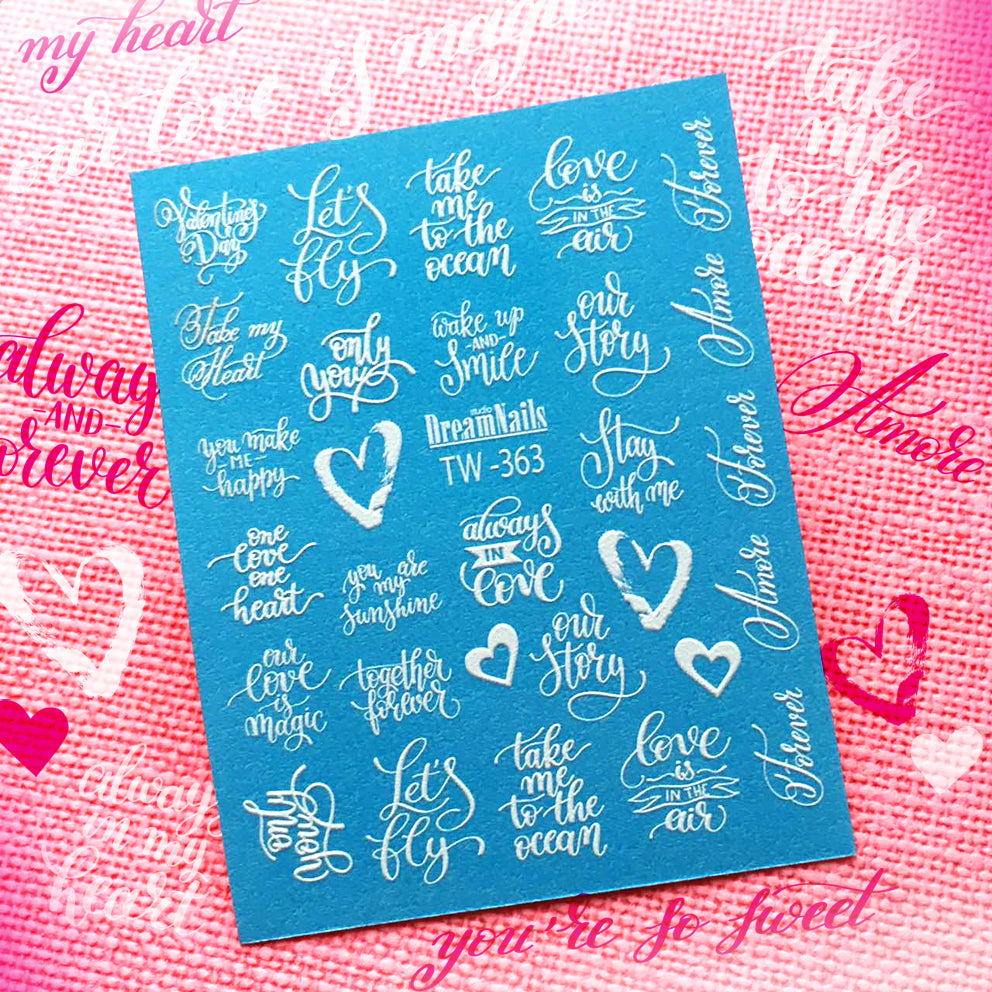 my heart
our love is magic
take
me
to the
ocean
Valentine's
Day
Let's
fly
take
me
to the
ocean
love
is
IN THE
air
Forever
Take my
Heart
only
you
wake up
-AND-
Smile
our
Story
Amore
always
-AND-
forever
you make
-ME-
happy
studio
DreamNails
TW -363
Stay
with me
Forever
Amore
one
love
one
heart
you are
my
sunshine
always
IN
love
Amore
our
love
is
magic
together
forever
our
Story
Forever
always
in my
heart
Let's
fly
take
me
to the
ocean
love
is
IN THE
air
you're so sweet